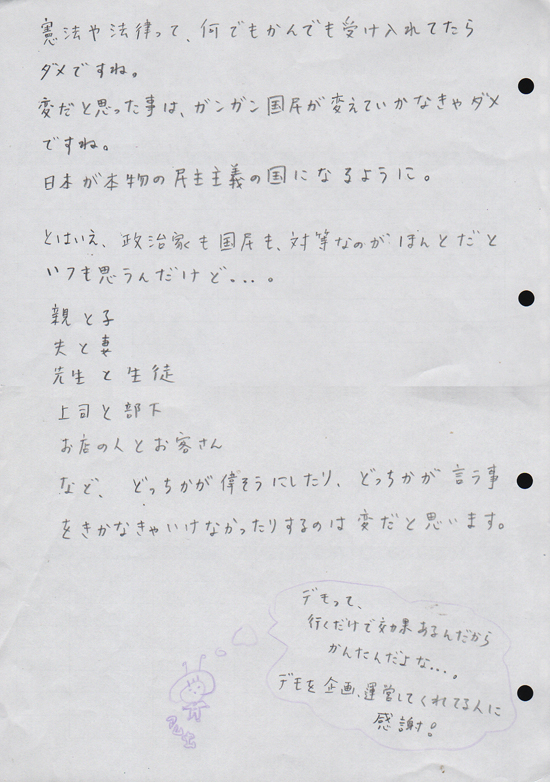 憲法や法律って、何でもかんでも受け入れてたら
ダメですね。
変だと思った事は、ガンガン国民が変えていかなきゃダメ
ですね。
日本が本物の民主主義の国になるように。
とはいえ、政治家も国民も、対等なのがほんとだと
いつも思うんだけど...。
親と子
夫と妻
先生と生徒
上司と部下
お店の人とお客さん
など、どっちかが偉そうにしたり、どっちかが言う事
をきかなきゃいけなかったりするのは変だと思います。
デモって、
行くだけで効果あるんだから
かんたんだよな...。
デモを企画、運営してくれてる人に
感謝!